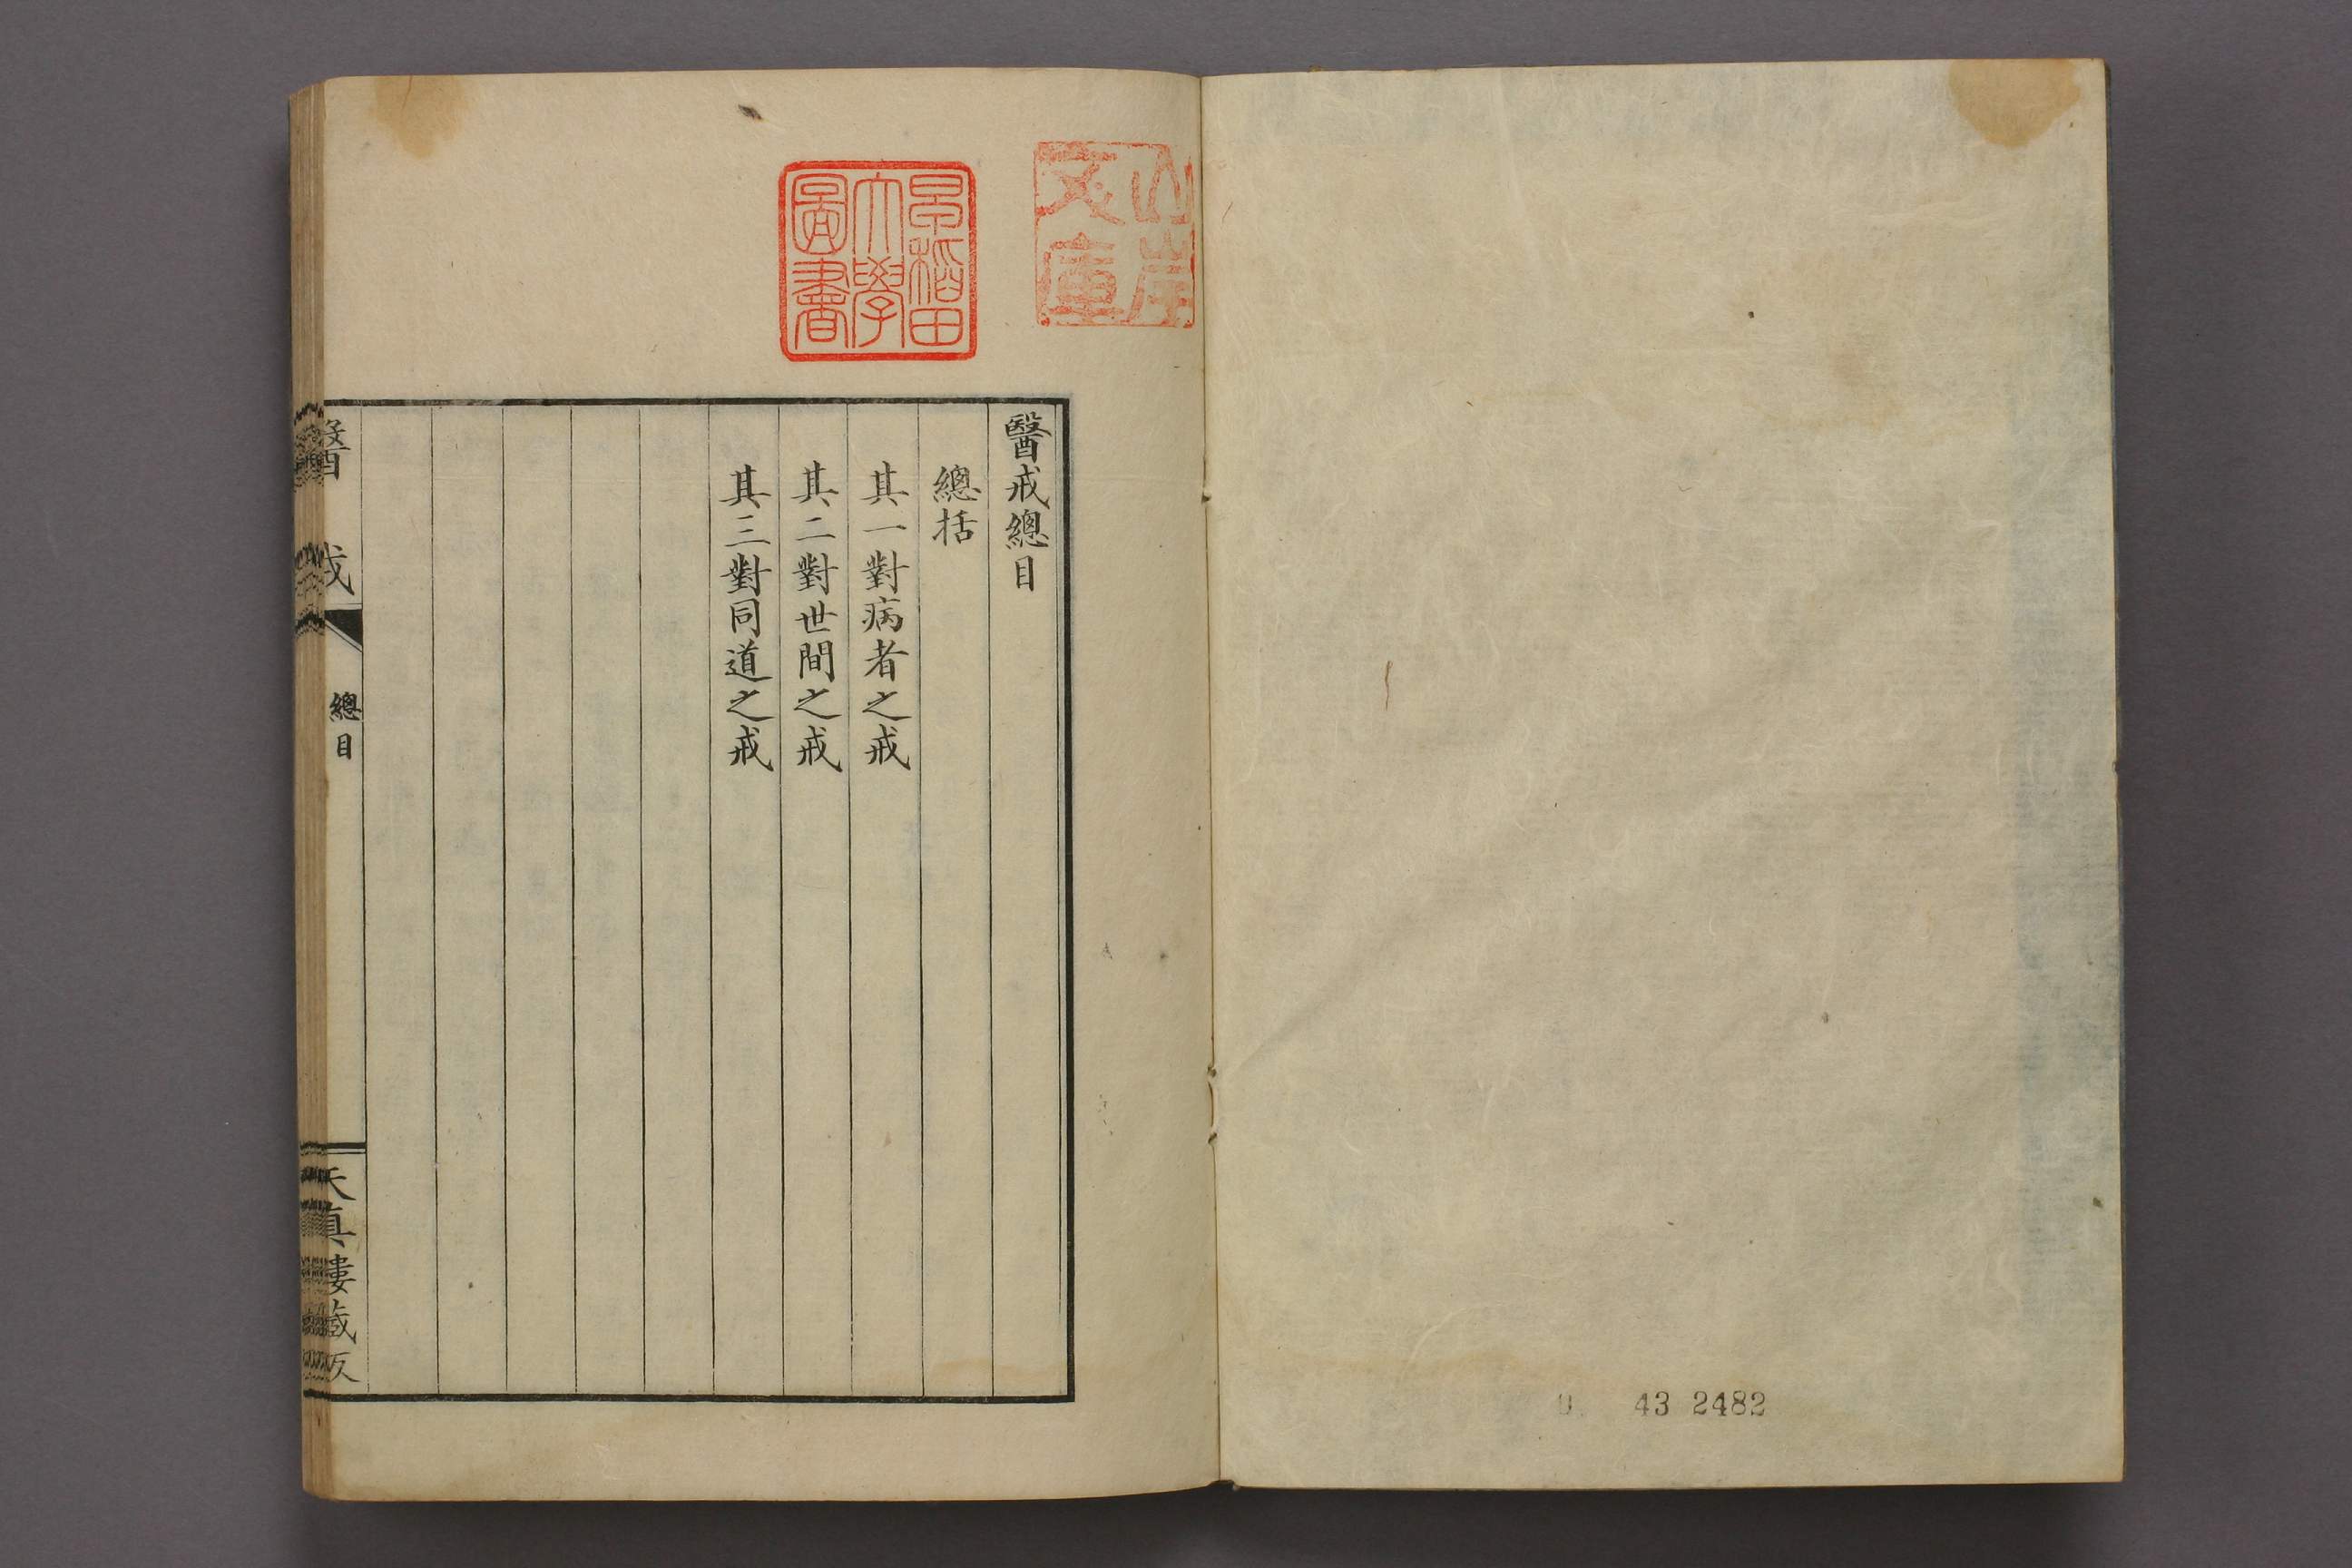 山岸
文庫
早稲田
大學
圖書
醫戒總目
總括
其一對病者之戒
其二對世間之戒
其三對同道之戒
醫戒
總目
天真樓藏版
43 2482